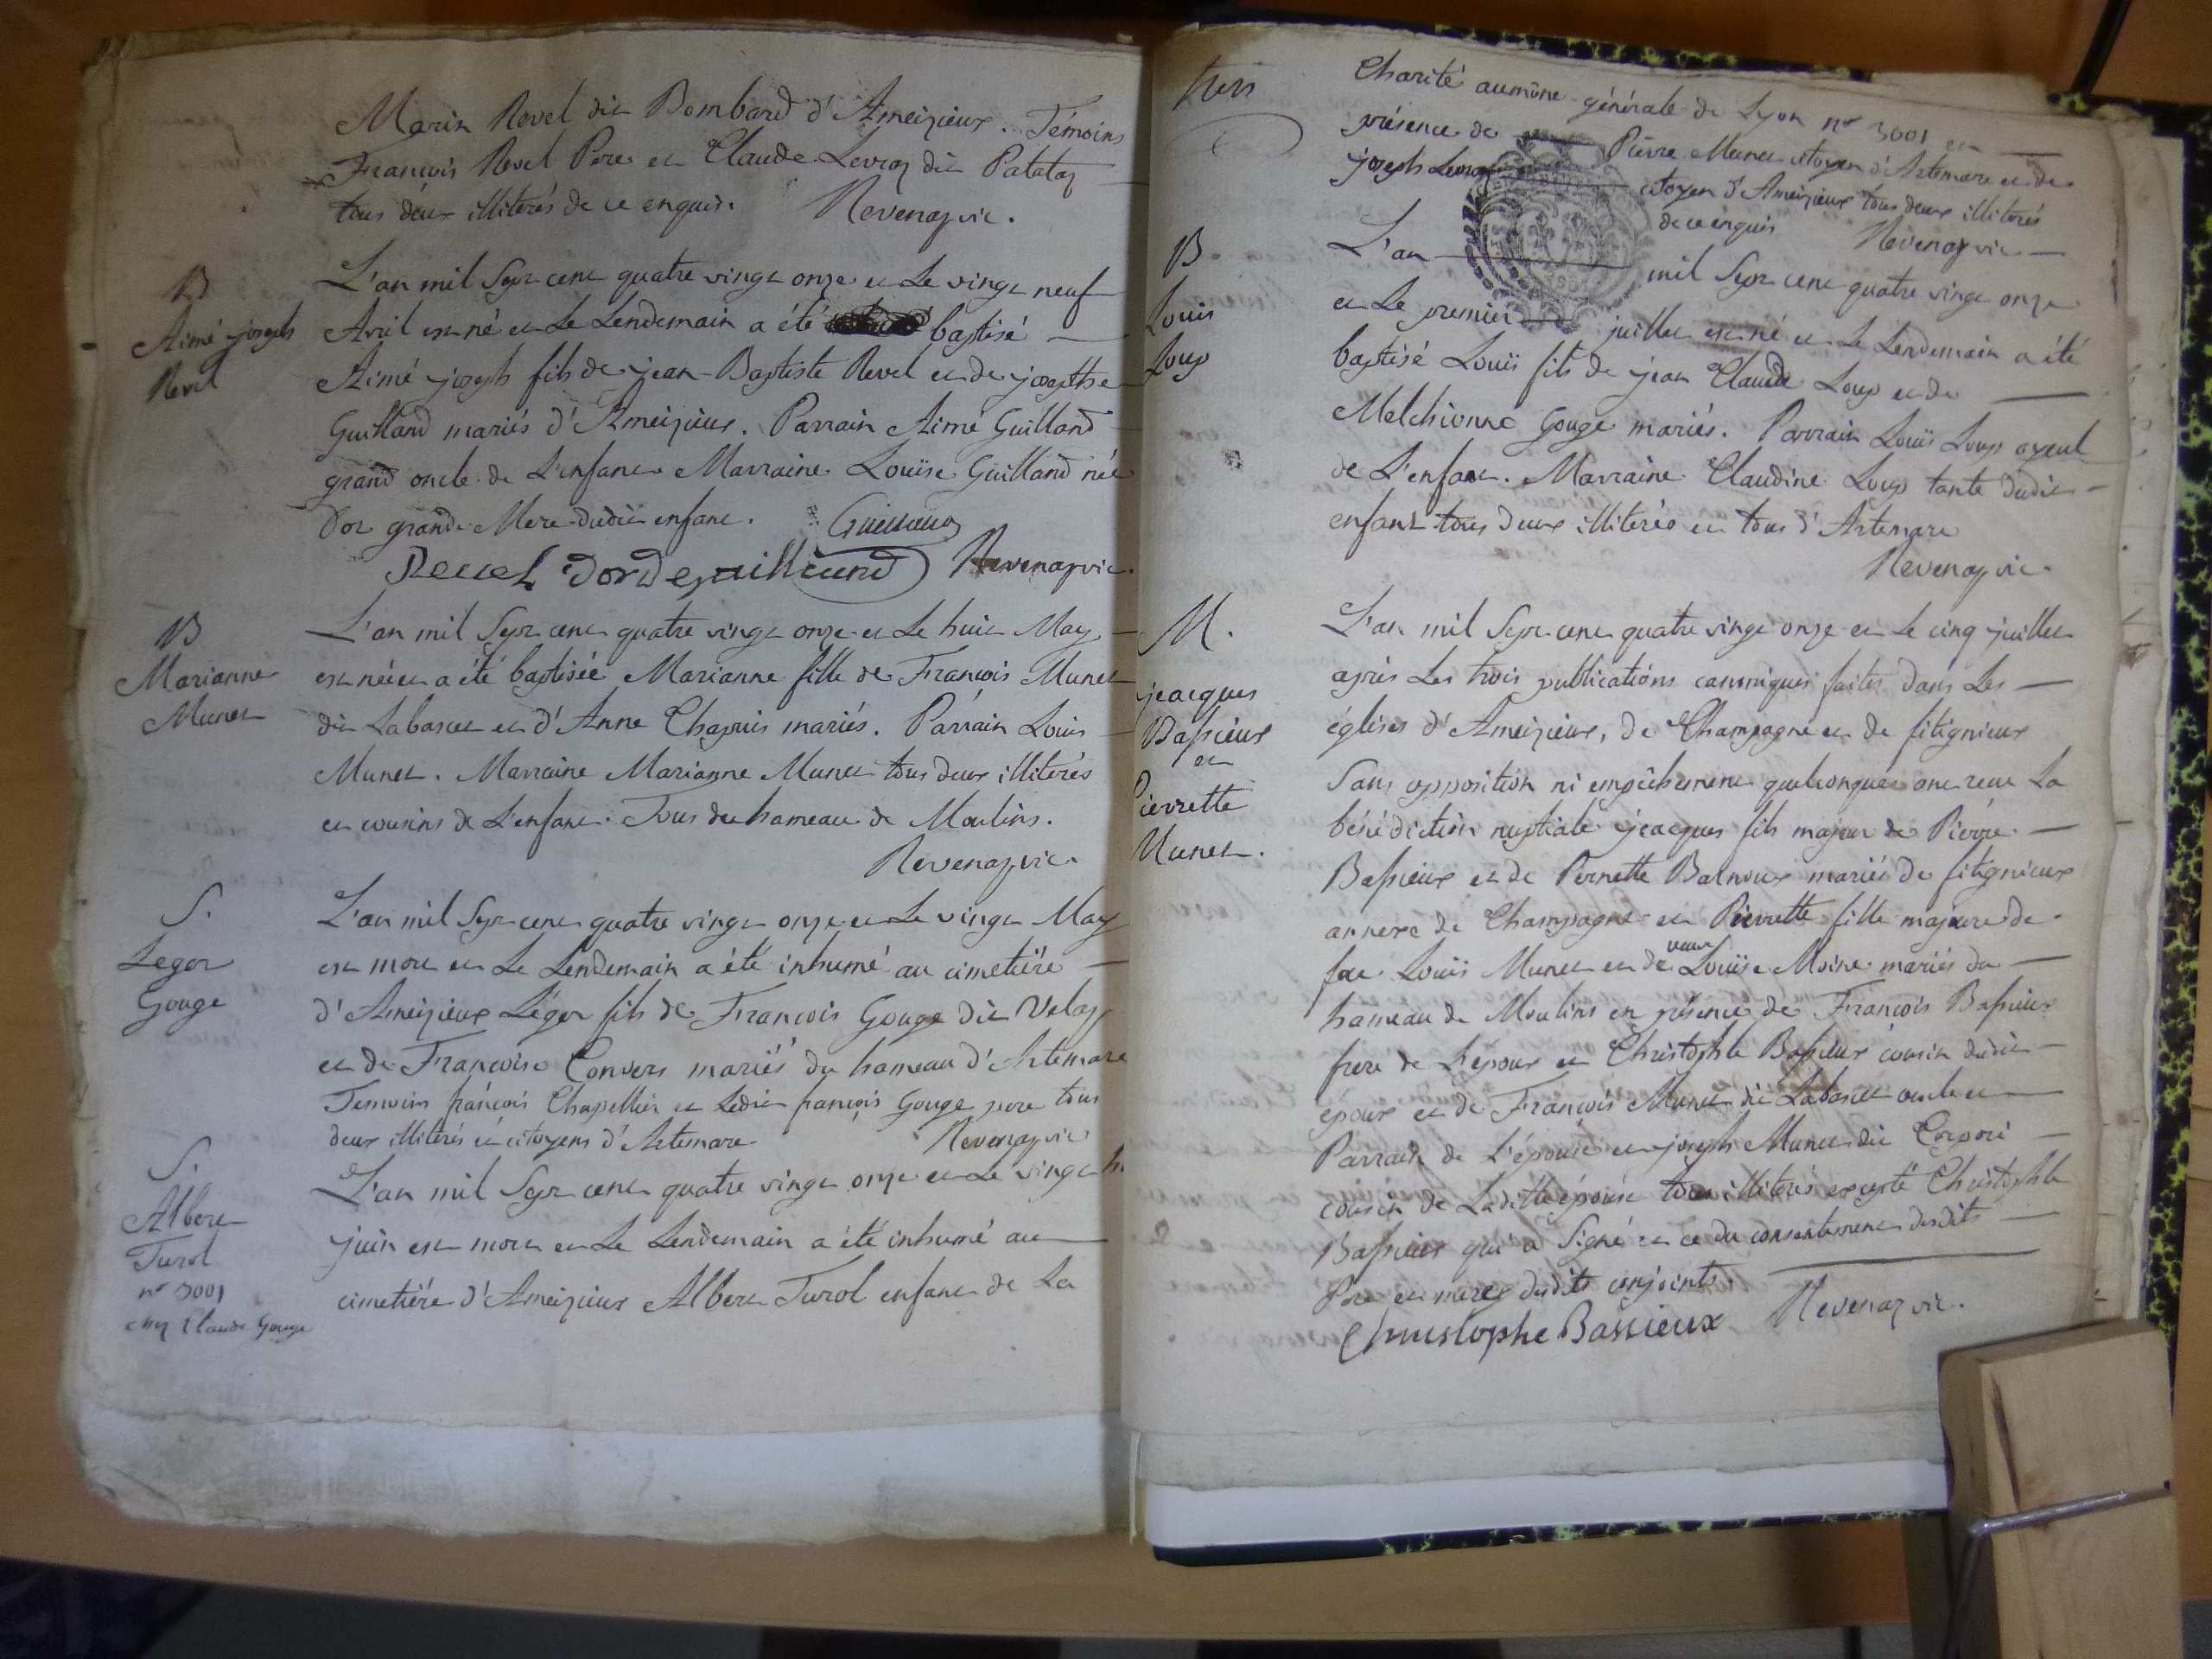 Marin Revel dit Bombard d'Ameizieux. Témoins
François Revel Pere et Claude Levraz dit Patataz
tous deux illiterés de ce enquis. Revenaz vic.
B
Aimé joseph
Revel
L'an mil Sept cent quatre vingt onze et Le vingt neuf
Avril est né et Le Lendemain a été baptisé
Aimé joseph fils de jean-Baptiste Revel et de josepthe
Guilland mariés d'Ameizieux. Parrain Aimé Guilland
grand oncle de L'enfant Marraine Louïse Guilland née
Dor grande Mere dudit enfant. Guilland
Revel Dor De guilliand Revenaz vic.
B
Marianne
Munet
L'an mil Sept cent quatre vingt onze et Le huit May
est née et a été baptisée Marianne fille de François Munet
dit Labascet et d'Anne Chapuis mariés. Parrain Louis
Munet. Marraine Marianne Munet tous deux illiterés
et cousins de L'enfant. Tous du hameau de Moulins.
Revenaz vic.
S.
Leger
Gouge
L'an mil Sept cent quatre vingt onze et Le vingt May
est mort et Le Lendemain a été inhumé au cimetière
d'Ameizieux Léger fils de François Gouge dit Velaz
et de Françoise Convers mariés du hameau d'Artemare
Temoins françois Chapellier et Ledit françois Gouge pere tous
deux illiterés et citoyens d'Artemare. Revenaz vic
S.
Albert
Turol
nº 3001
chez Claude Gouge
L'an mil Sept cent quatre vingt onze et Le vingt
juin est mort et Le Lendemain a été inhumé au
cimetière d'Ameizieux Albert Turol enfant de La
Charité aumône générale de Lyon nº 3001 en
présence de Pierre Munet citoyen d'Artemare et de
joseph Levraz citoyen d'Ameizieux tous deux illiterés
de ce enquis Revenaz vic
B
Louis
Loup
L'an mil Sept cent quatre vingt onze
et Le premier juillet est né et Le Lendemain a été
baptisé Louïs fils de jean Claude Loup et de
Melchionne Gouge mariés. Parrain Louïs Loup ayeul
de L'enfant. Marraine Claudine Loup tante dudit
enfant tous deux illiterés et tous d'Artemare
Revenaz vic.
M.
jeacques
Bassieux
et
Pierrette
Munet.
L'an mil Sept cent quatre vingt onze et Le cinq juillet
après Les trois publications canoniques faites dans Les
églises d'Ameizieux, de Champagne et de fitignieux
Sans opposition ni empêchement quelconques ont recu La
bénédiction nuptiale jeacques fils majeur de Pierre
Bassieux et de Pernette Balnoux mariés de fitignieux
annexe de Champagne et Pierrette fille majeure de
feu Louïs Munet et de veuve Louïse Moine mariés du
hameau de Moulins en présence de François Bassieux
frere de L'époux et Christophle Bassieux cousin dudit
époux et de François Munet dit Labascet oncle et
Parrain de L'épouse et joseph Munet dit Corpori
cousin de Laditte épouse tous illiterés excepté Christophle
Bassieux qui a Signé et ce du consentement desdits
Pere et meres desdits conjoints.
Christophe Bassieux Revenaz vic.